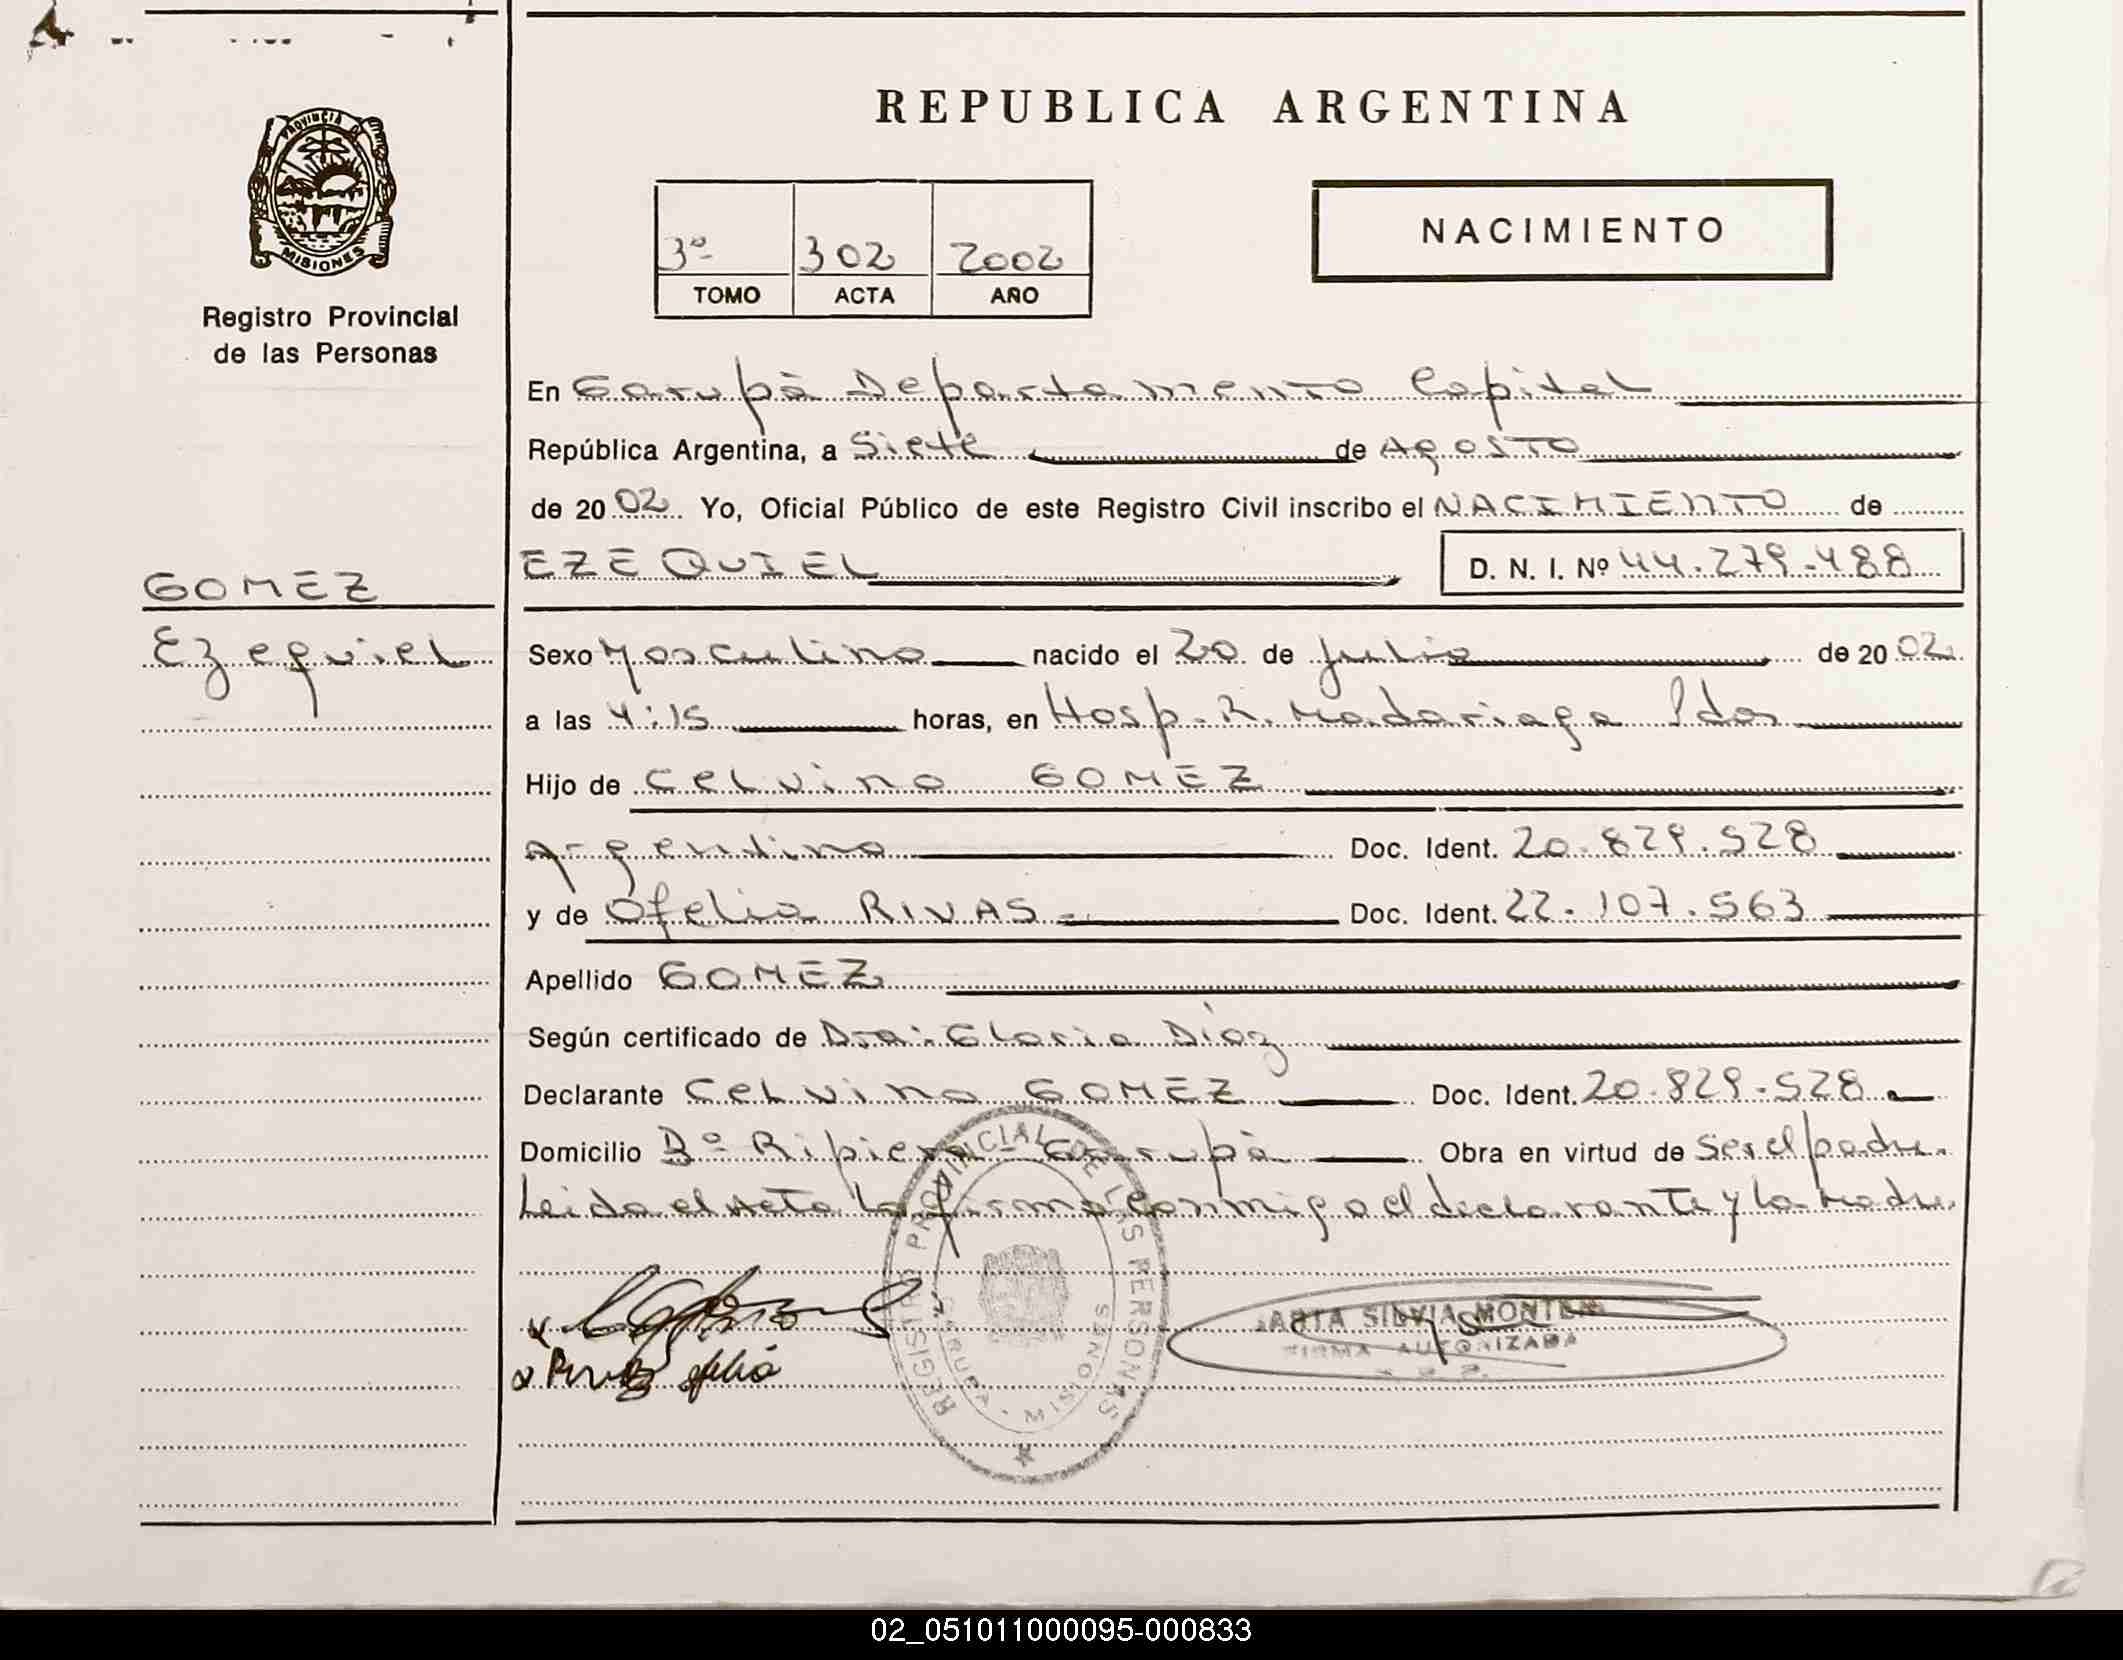 REPUBLICA ARGENTINA
PROVINCIA DE
MISIONES
Registro Provincial
de las Personas
3º 302 2002
TOMO ACTA AÑO
NACIMIENTO
En Garupà Departamento Capital
República Argentina, a Siete de Agosto
de 2002 Yo, Oficial Público de este Registro Civil inscribo el NACIMIENTO de
EZEQUIEL D. N. I. Nº 44.279.488
GOMEZ
Ezequiel
Sexo Masculino nacido el 20 de Julio de 2002
a las 4:15 horas, en Hosp. R. Madariaga Pdas
Hijo de Celvino GOMEZ
Argentino Doc. Ident. 20.829.528
y de Ofelia RIVAS Doc. Ident. 22.107.563
Apellido GOMEZ
Según certificado de Dra: Gloria Díaz
Declarante Celvino GOMEZ Doc. Ident. 20.829.528
Domicilio Bº Ripiera Garupà Obra en virtud de Ser el padre.
Leida el Acta la firma conmigo el declarante y la Madre.
REGISTRO PROVINCIAL DE LAS PERSONAS
GARUPA - MISIONES
SILVIA
FIRMA AUTORIZADA
02_051011000095-000833